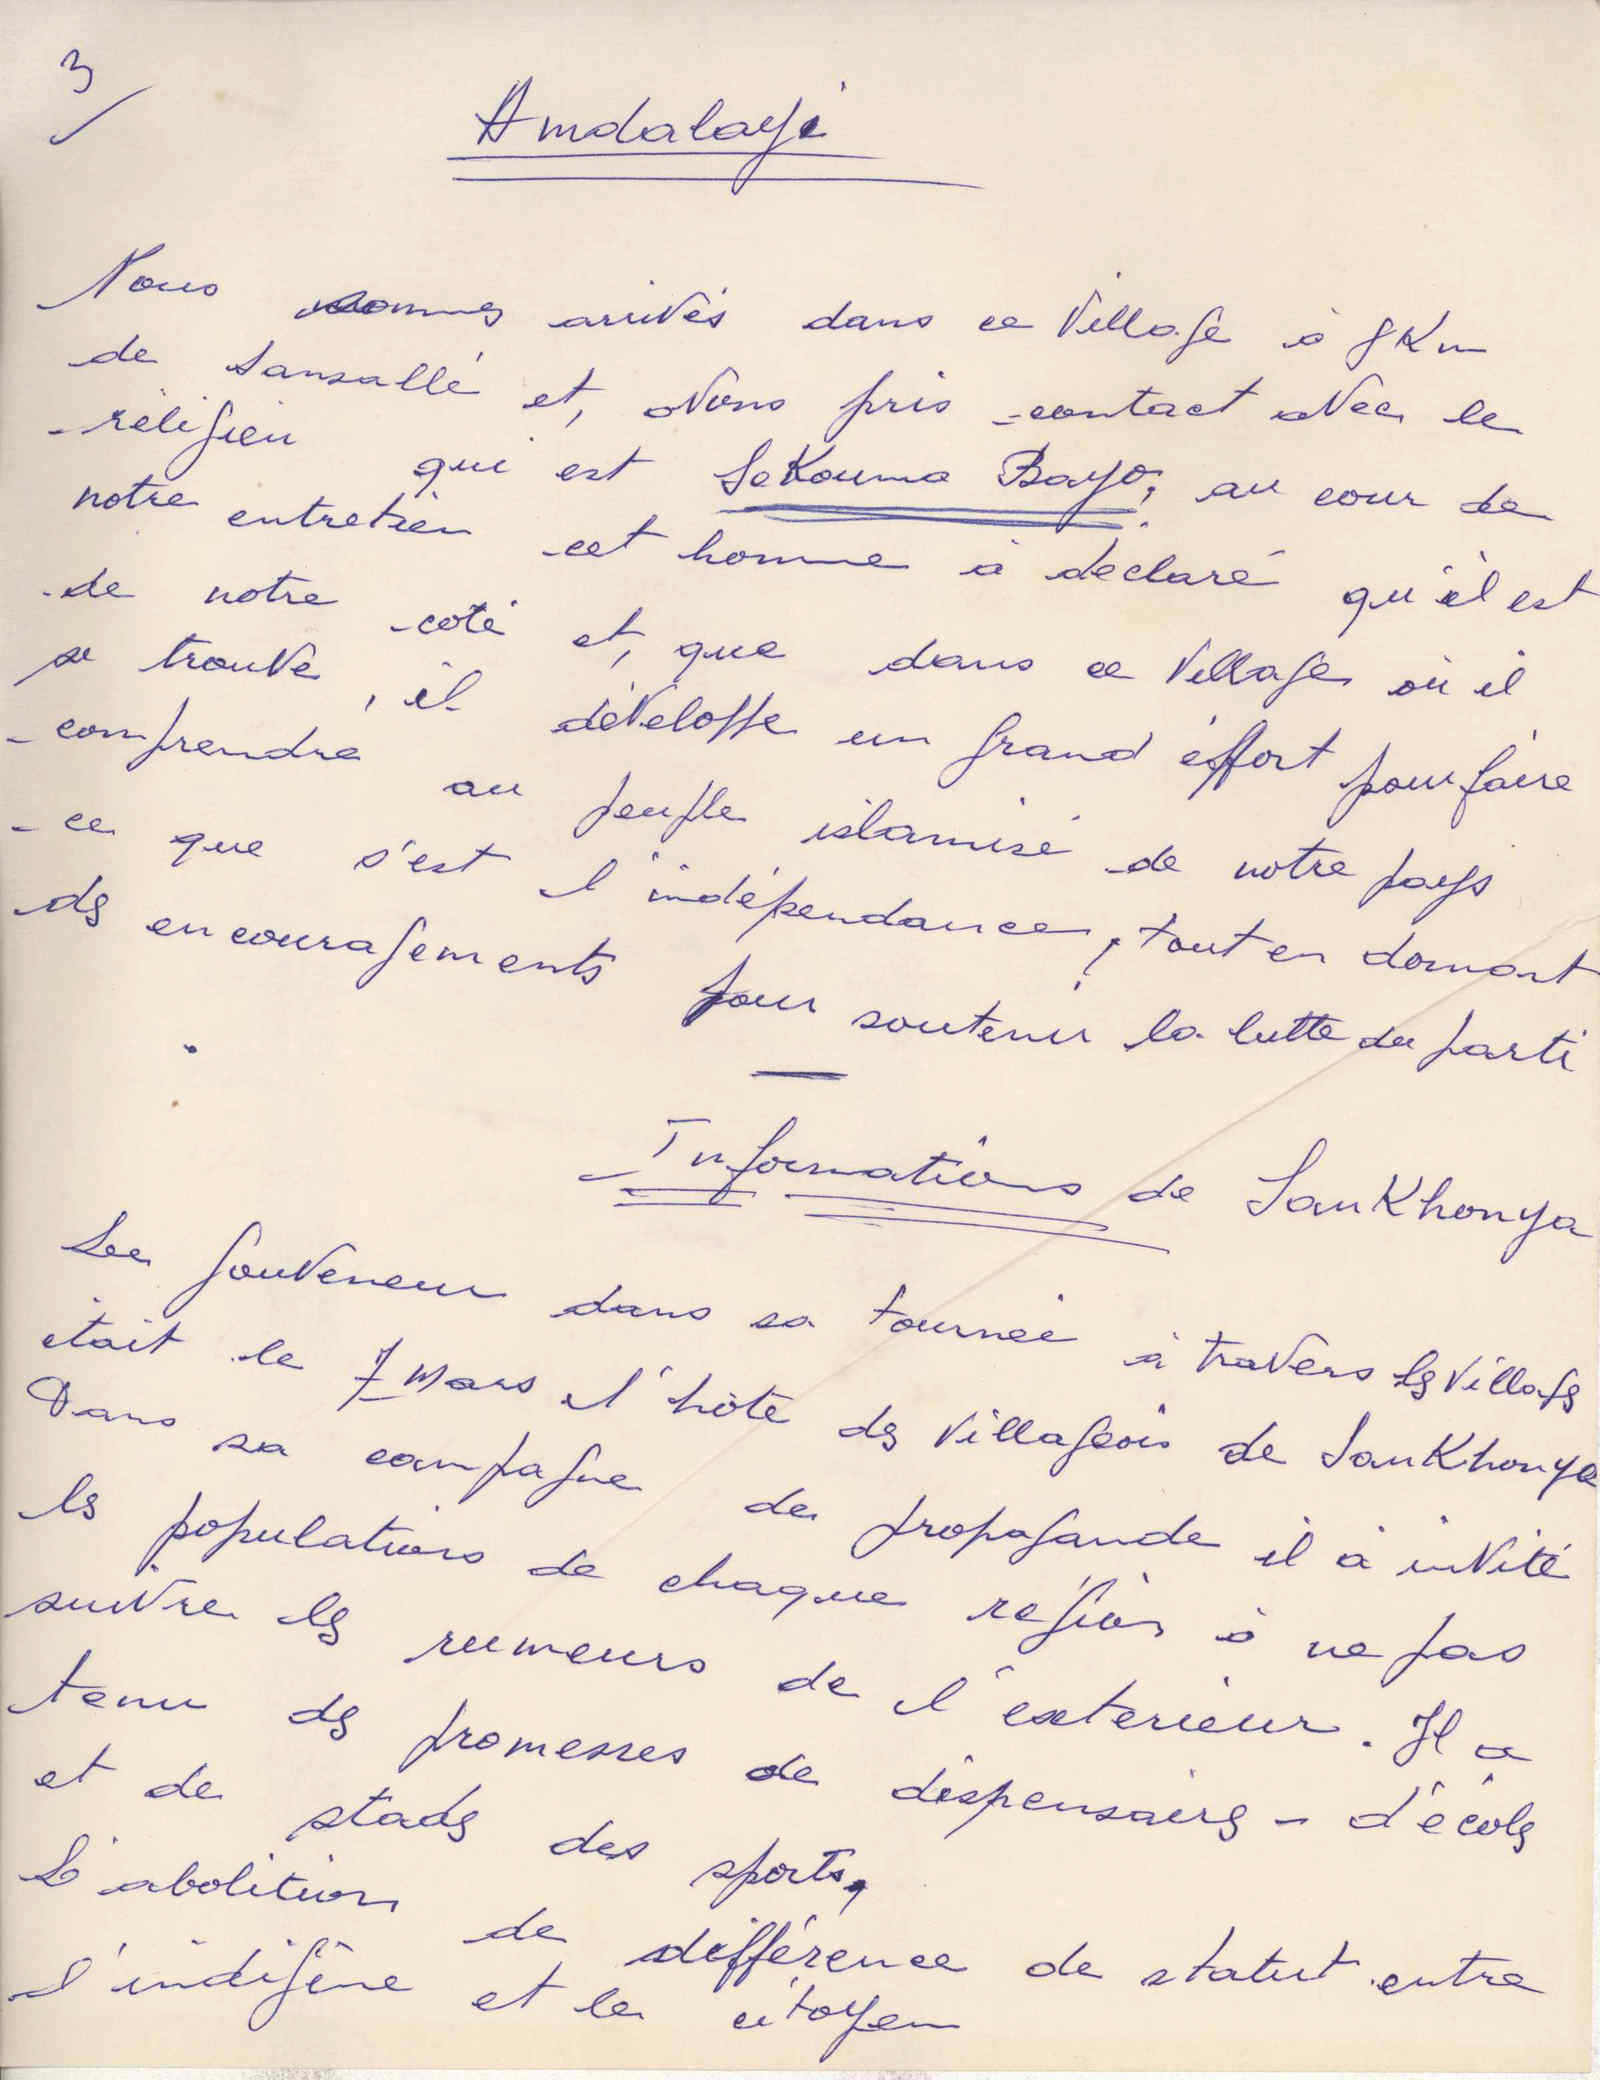 3/
Amdalayé
Nous sommes arrivés dans ce village à 8 Km
de Sansallé et, avons pris contact avec le
réligieu qui est SeKouma Bayo, au cour de
notre entretien cet homme à déclaré qu'il est
de notre coté et, que dans ce village où il
se trouve, il développe un grand éffort pour faire
comprendre au peuple islamisé de notre pays
ce que s'est l'indépendance, tout en donnant
des encouragements pour soutenir la lutte du parti
Informations de SanKhonya
Le Gouveneur dans sa tournée à travers les villages
était le 7 mars l'hôte des villageois de SanKhonya
Dans sa campagne de propagande il à invité
les populations de chaque région à ne pas
suivre les rumeurs de l'exterieur. Il a
tenu des promesses de dispensaires - d'écoles
et de stades des sports,
L'abolition de différence de statut entre
l'indigène et le citoyen